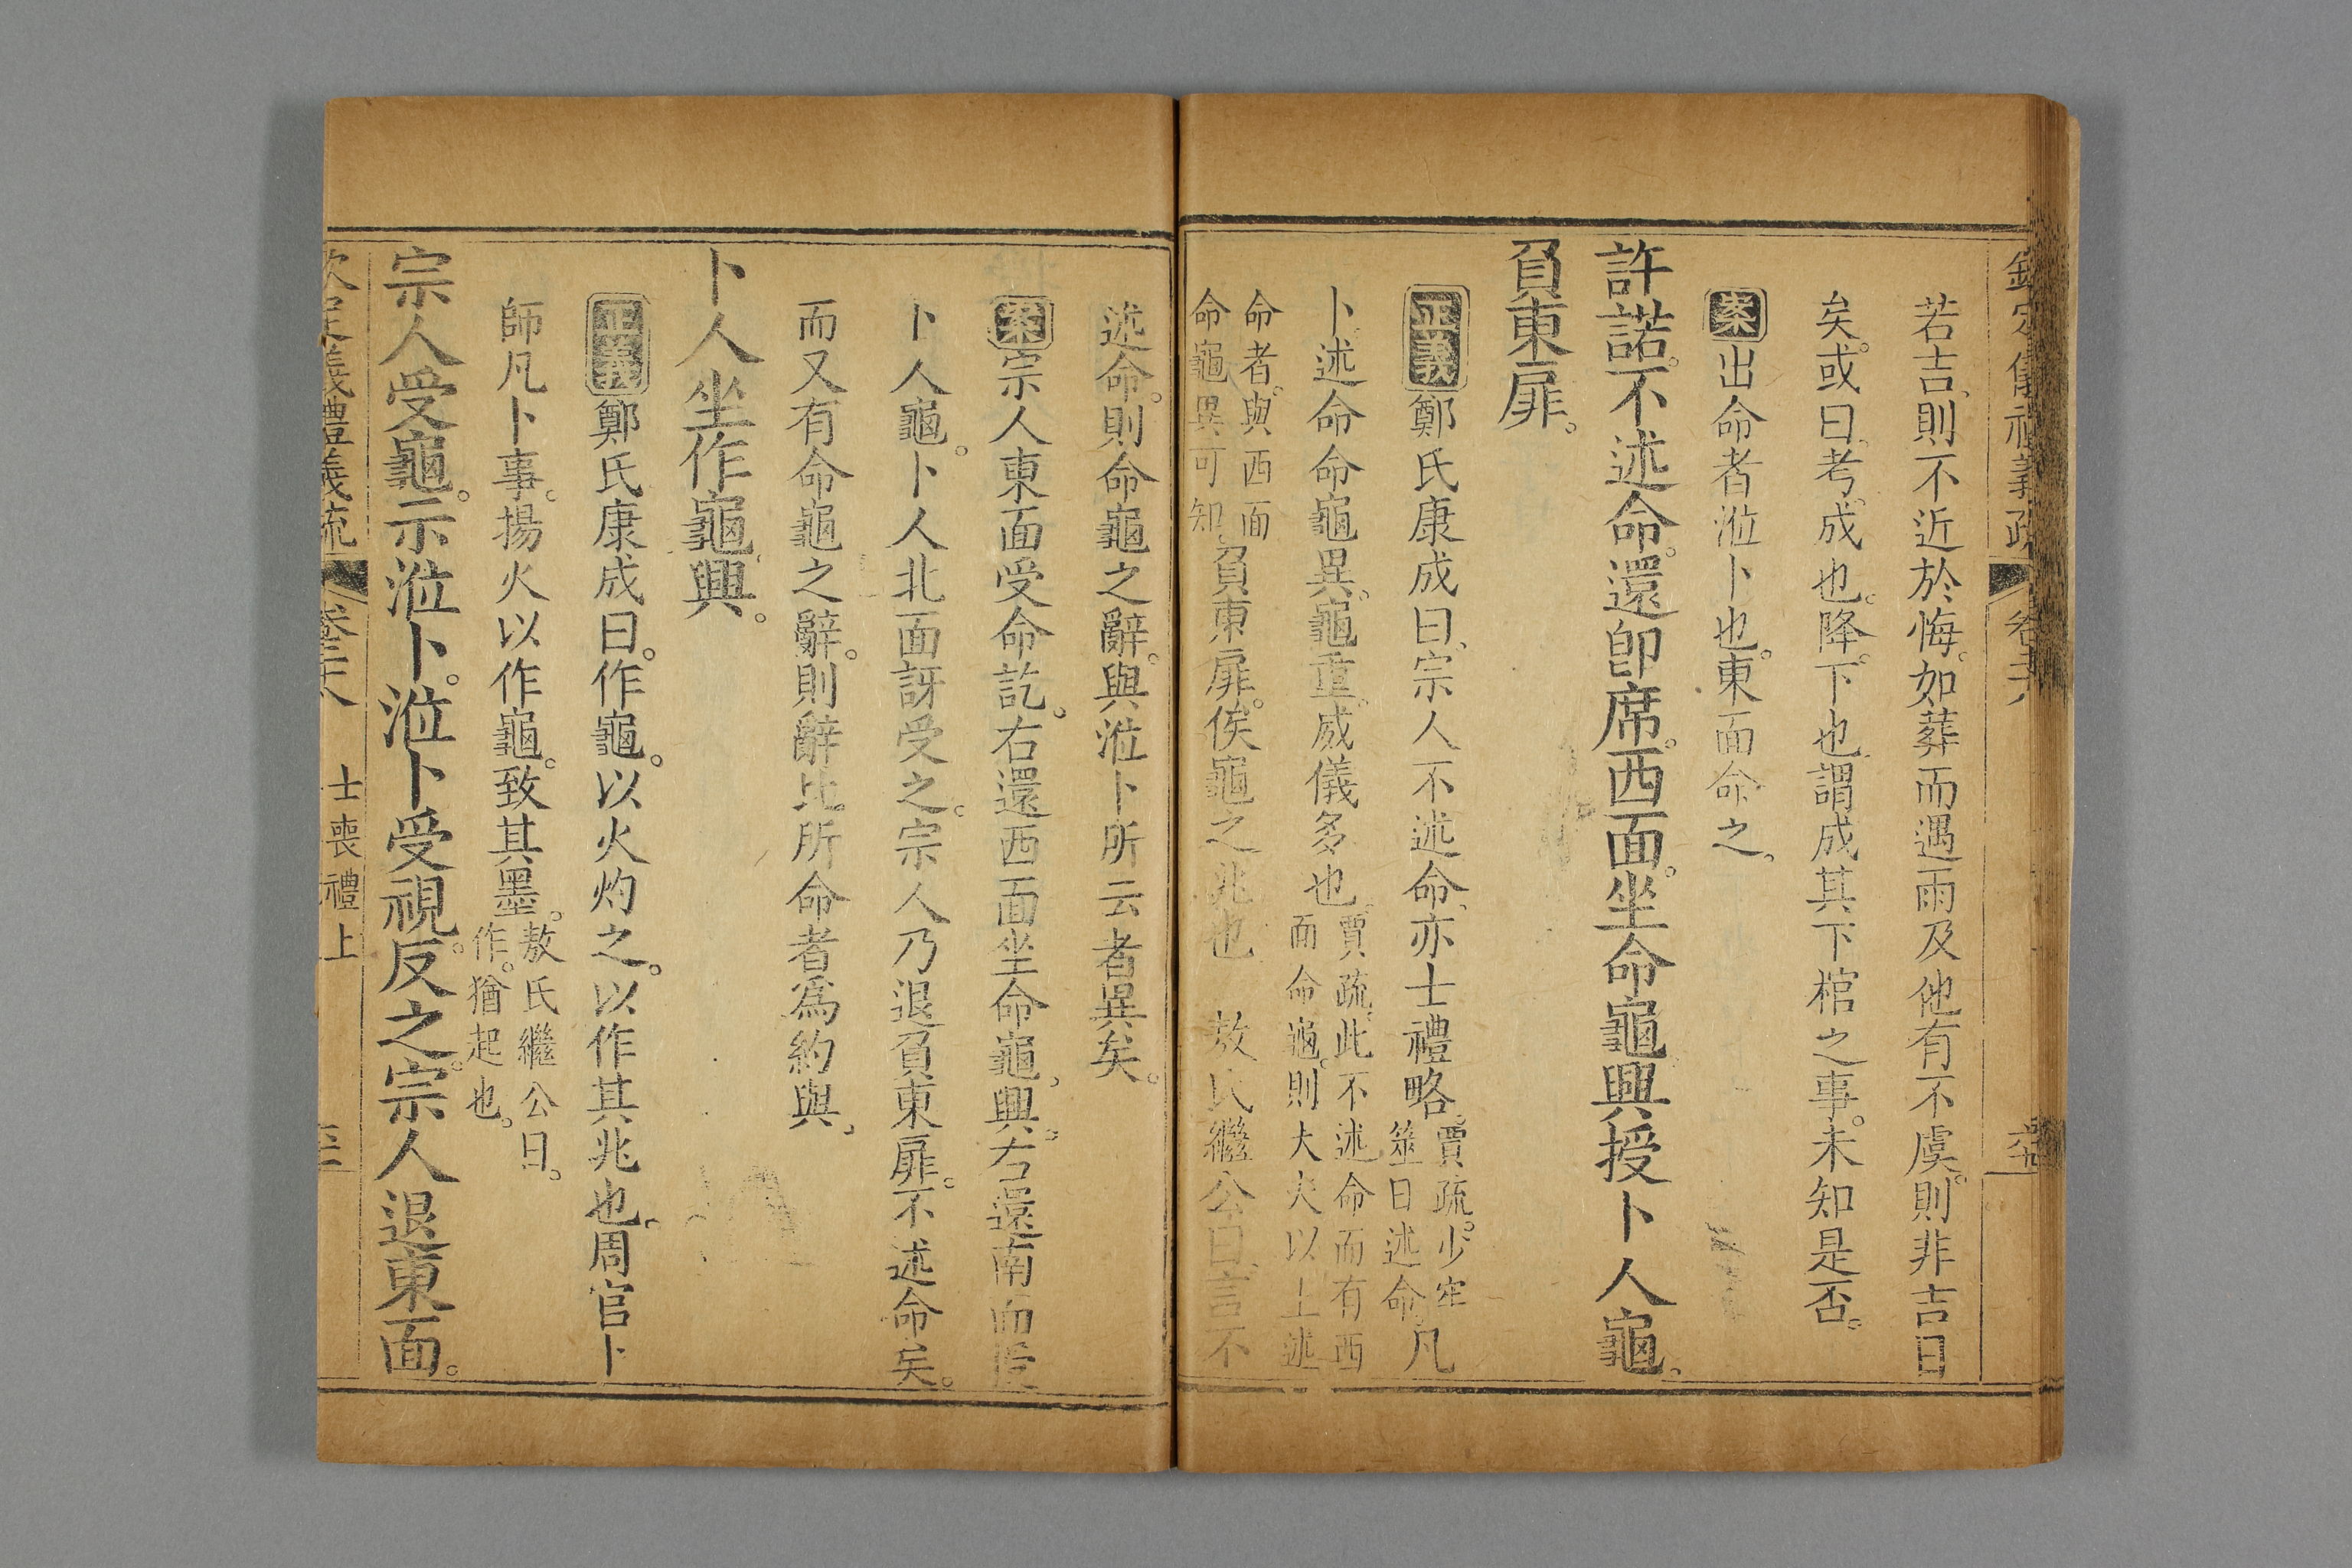 若吉、則不近於悔。如葬而遇雨及他有不虞。則非吉日
矣。或曰。考。成也。降。下也。謂成其下棺之事。未知是否。
案出命者涖卜也。東面命之。
許諾。不述命。還卽席。西面。坐命龜興。授卜人龜。
負東扉。
正義鄭氏康成曰、宗人不述命、亦士禮略。賈疏。少牢
筮日述命。凡
卜述命。命龜異。龜重。威儀多也。賈疏。此不述命而有西
面命龜。則大夫以上述
命者。與西面
命龜異可知。負東扉。俟龜之兆也。敖氏繼公曰、言不
述命。則命龜之辭。與涖卜所云者異矣。
案宗人東面受命訖。右還西面坐命龜、興。右還南面授
卜人龜。卜人北面訝受之。宗人乃退負東扉。不述命矣。
而又有命龜之辭。則辭比所命者爲約與、
卜人坐。作龜。興。
正義鄭氏康成曰。作龜。以火灼之。以作其兆也。周官卜
師凡卜事。揚火以作龜。致其墨。敖氏繼公曰。
作。猶起也。
宗人受龜。示涖卜。涖卜受視。反之。宗人退東面。
欽定義禮義疏 卷二十八 士喪禮上